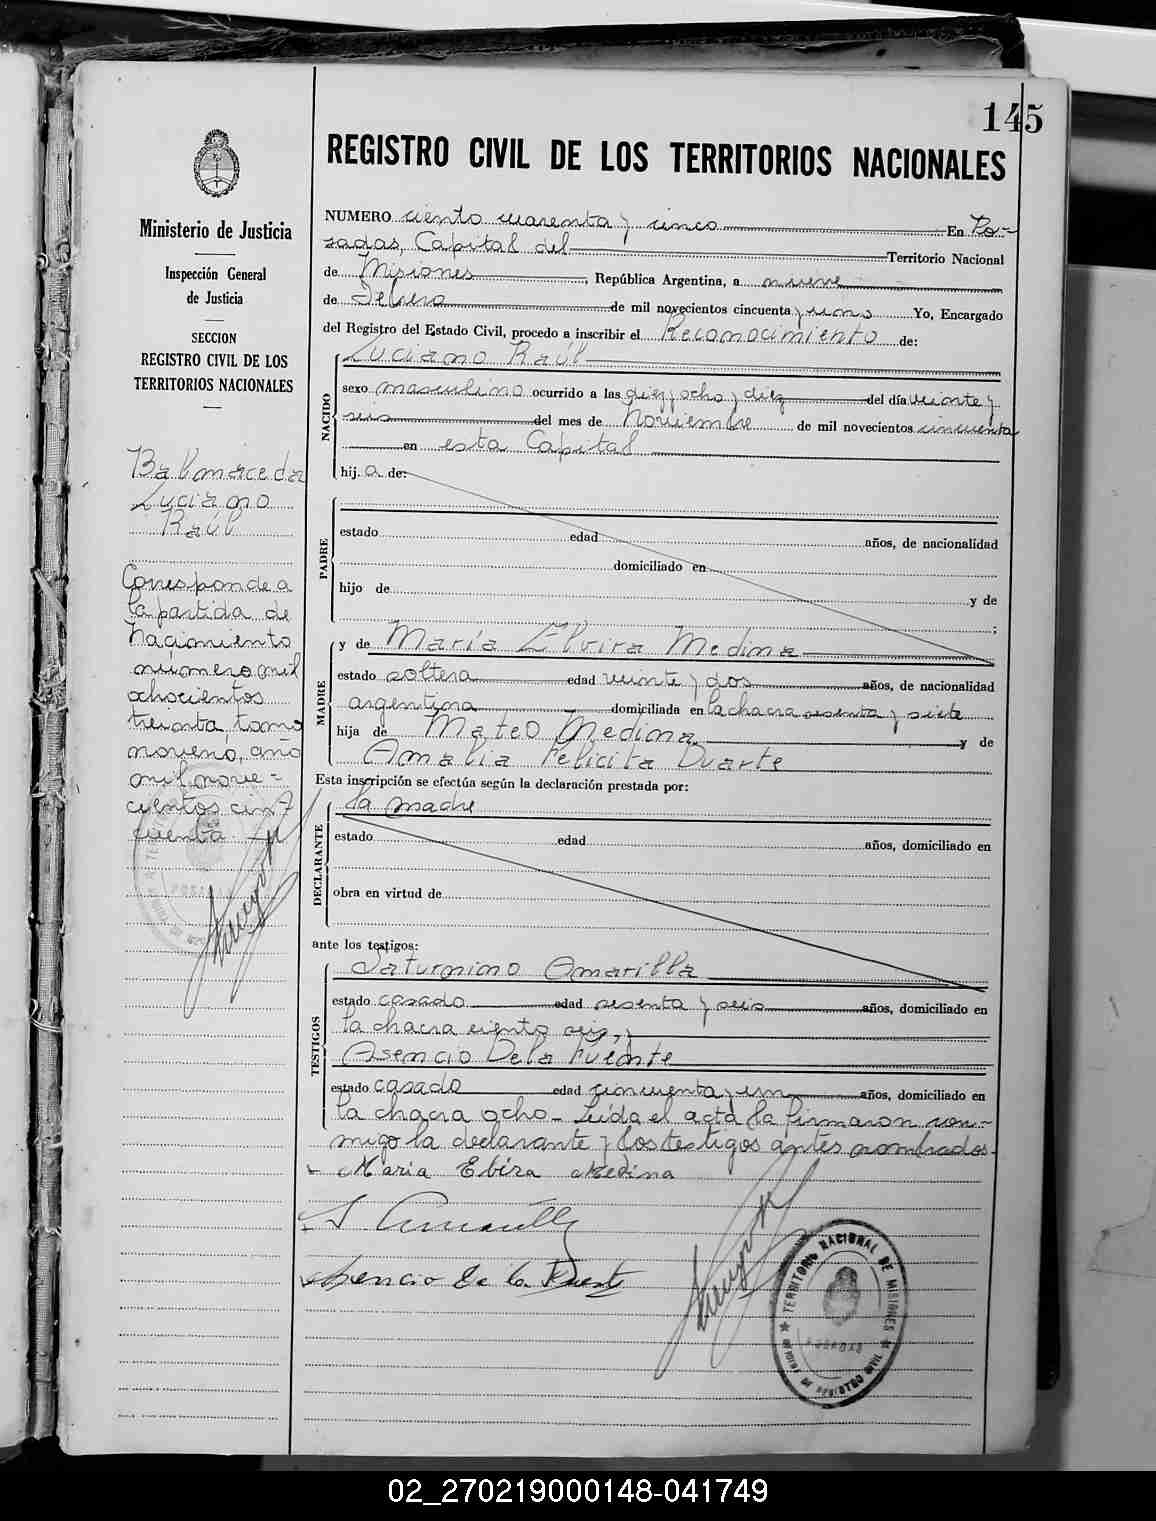 145
REGISTRO CIVIL DE LOS TERRITORIOS NACIONALES
Ministerio de Justicia
Inspección General
de Justicia
SECCION
REGISTRO CIVIL DE LOS
TERRITORIOS NACIONALES
Balmaceda
Luciano
Raúl
Corresponde a
la partida de
Nacimiento
número mil
ochocientos
treinta, tomo
noveno, año
mil nove=
cientos cin
cuenta
NUMERO ciento cuarenta y cinco En Po-
sadas, Capital del Territorio Nacional
de Misiones, República Argentina, a nueve
de Febrero de mil novecientos cincuenta y uno Yo, Encargado
del Registro del Estado Civil, procedo a inscribir el Reconocimiento de:
NACIDO
Luciano Raúl
sexo masculino ocurrido a las diez y ocho y diez del día veinte y
seis del mes de Noviembre de mil novecientos cincuenta
en esta Capital
hij.a de:
PADRE
estado edad años, de nacionalidad
domiciliado en
hijo de y de
;
MADRE
y de María Elvira Medina
estado soltera edad veinte y dos años, de nacionalidad
argentina domiciliada en la chacra sesenta y siete
hija de Mateo Medina y de
Amalia Felicita Duarte
Esta inscripción se efectúa según la declaración prestada por:
DECLARANTE
la madre
estado edad años, domiciliado en
obra en virtud de
ante los testigos:
TESTIGOS
Saturnino Amarilla
estado casado edad sesenta y seis años, domiciliado en
la chacra ciento seis, y
Asencio De la Fuente
estado casado edad cincuenta y un años, domiciliado en
la chacra ocho - Leída el acta la firmaron con-
migo la declarante y los testigos antes nombrados-
Maria Elvira Medina
S Amarilla
Asencio de la Fuente
TERRITORIO NACIONAL DE MISIONES
POSADAS
REGISTRO CIVIL
02_270219000148-041749